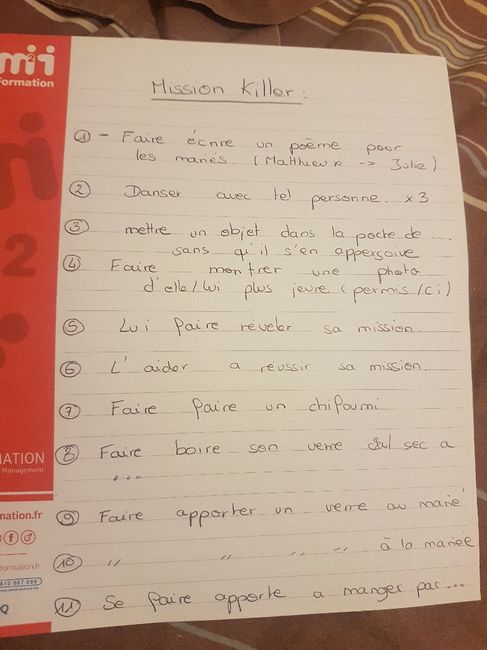 m2i
Formation
Mission Killer :
① - Faire écrire un poème pour
les mariés. (Matthieux -> Julie)
② Danser avec tel personne. x3
③ mettre un objet dans la poche de ...
sans qu'il s'en apperçoive
④ Faire montrer une photo
d'elle/lui plus jeune (permis/ci)
⑤ Lui faire révéler sa mission.
⑥ L'aider a réussir sa mission.
⑦ Faire faire un chifoumi
⑧ Faire boire son verre cul sec a
...
⑨ Faire apporter un verre au marié
⑩ " " " " à la mariée
⑪ Se faire apporte a manger par...
MATION
Management
mation.fr
formation.fr